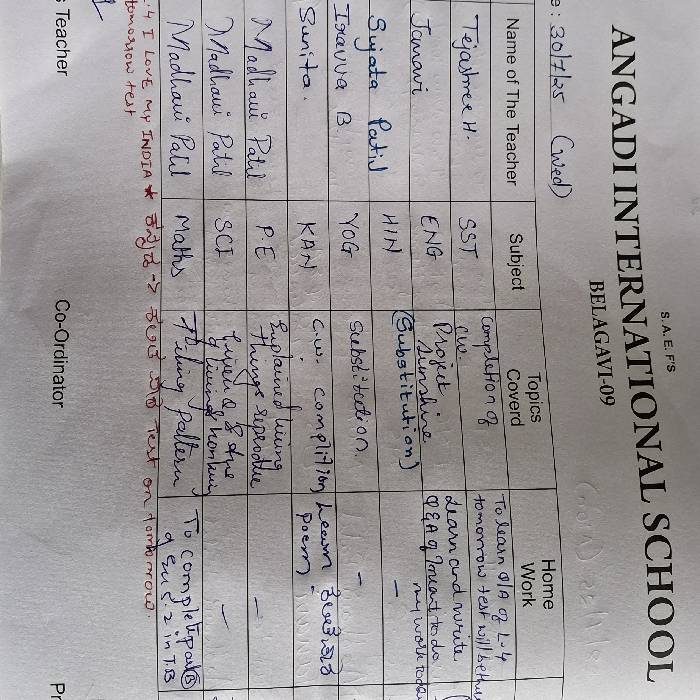 S.A.E.F'S
ANGADI INTERNATIONAL SCHOOL
BELAGAVI-09
e: 30/7/25 (Wed)
Name of The Teacher Subject Topics Coverd Home Work
Tejashree H. SST Completion of CW To learn Q/A of L-4 tomorrow test will be
Janavi ENG Project Sunshine Learn and write Q&A of I want to do my work today
Sujata Patil HIN (Substitution) -
Iravva B. YOG Substitution. -
Sunita. KAN C.W. Complition Learn poem.
Madhavi Patil P.E Explained living things reproduce -
Madhavi Patil SCI living & non living -
Madhavi Patil Maths Tiling pattern To complete part B of Ex 2.2 in T.B
.4 I LOVE My INDIA ★ ಕನ್ನಡ → Test on tomorrow.
tomorrow test
s Teacher Co-Ordinator Pr